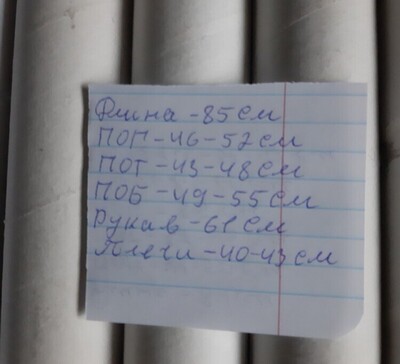 Длина - 85 см
ПОГ - 46 - 52 см
ПОТ - 43 - 48 см
ПОБ - 49 - 55 см
Рукав - 61 см
Плечи - 40 - 43 см